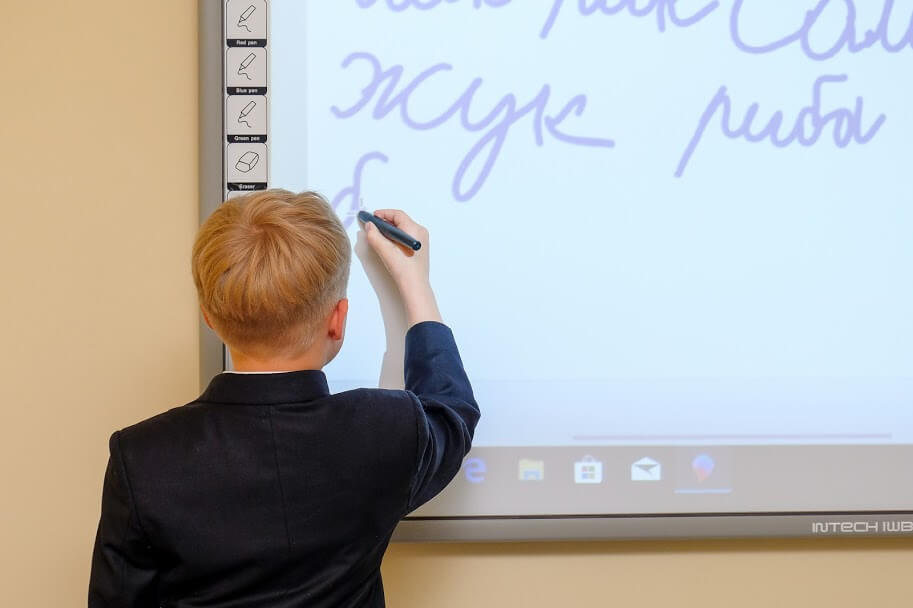 Red pen
Blue pen
Green pen
Eraser
жук риба
б
INTECH IWB